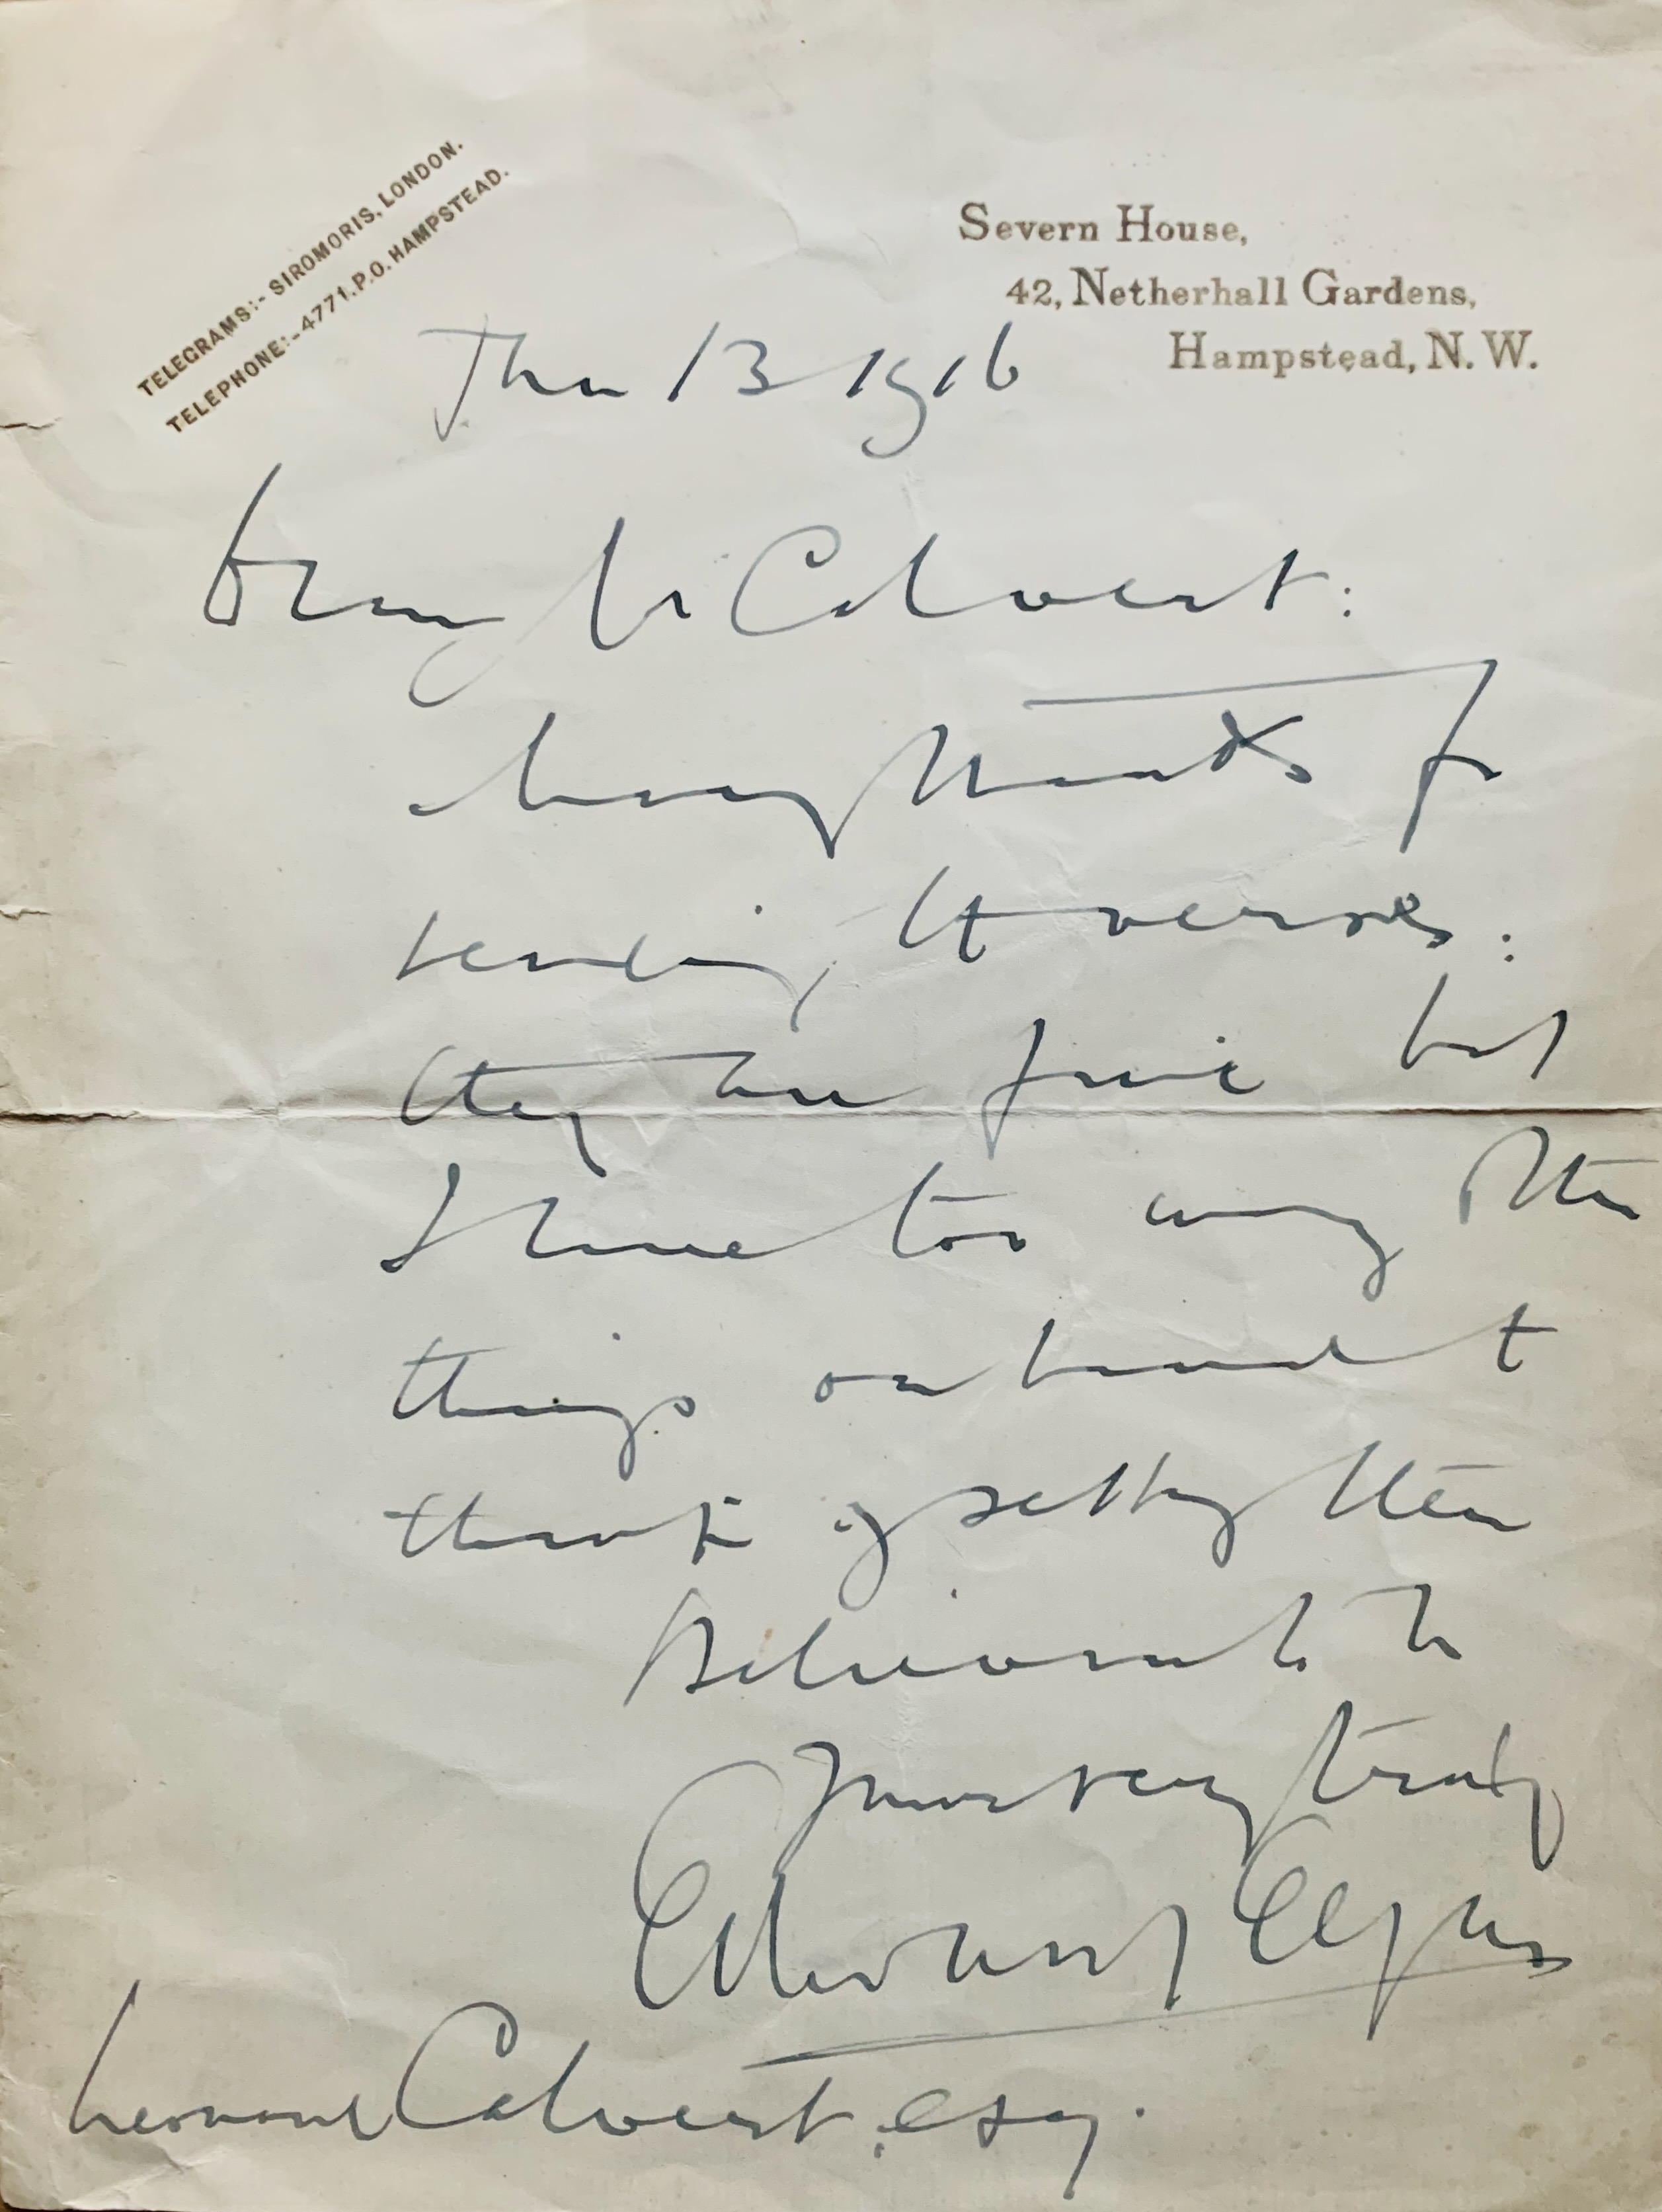 TELEGRAMS:- SIROMORIS, LONDON.
TELEPHONE:- 4771. P.O. HAMPSTEAD.
Severn House,
42, Netherhall Gardens,
Hampstead, N. W.
13 1916
Dear Mr Calvert:
Many thanks for
sending the verses:
they are fine but
I have too many other
things on hand to
think of setting them
Believe me to be
Yours very truly
Edward Elgar
Leonard Calvert, Esq.